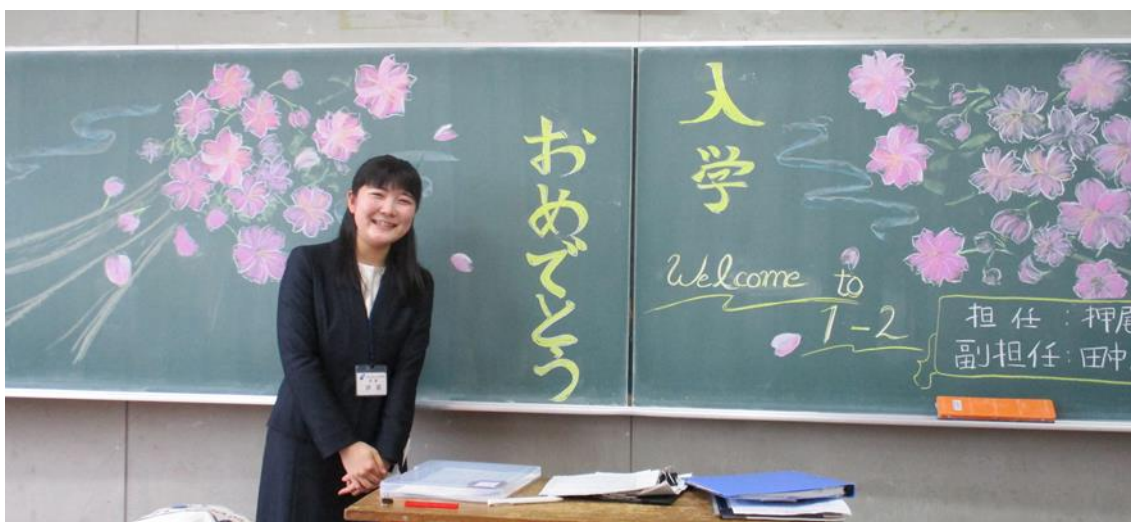 入学
おめでとう
Welcome to
1-2
担任:押
副担任:田中